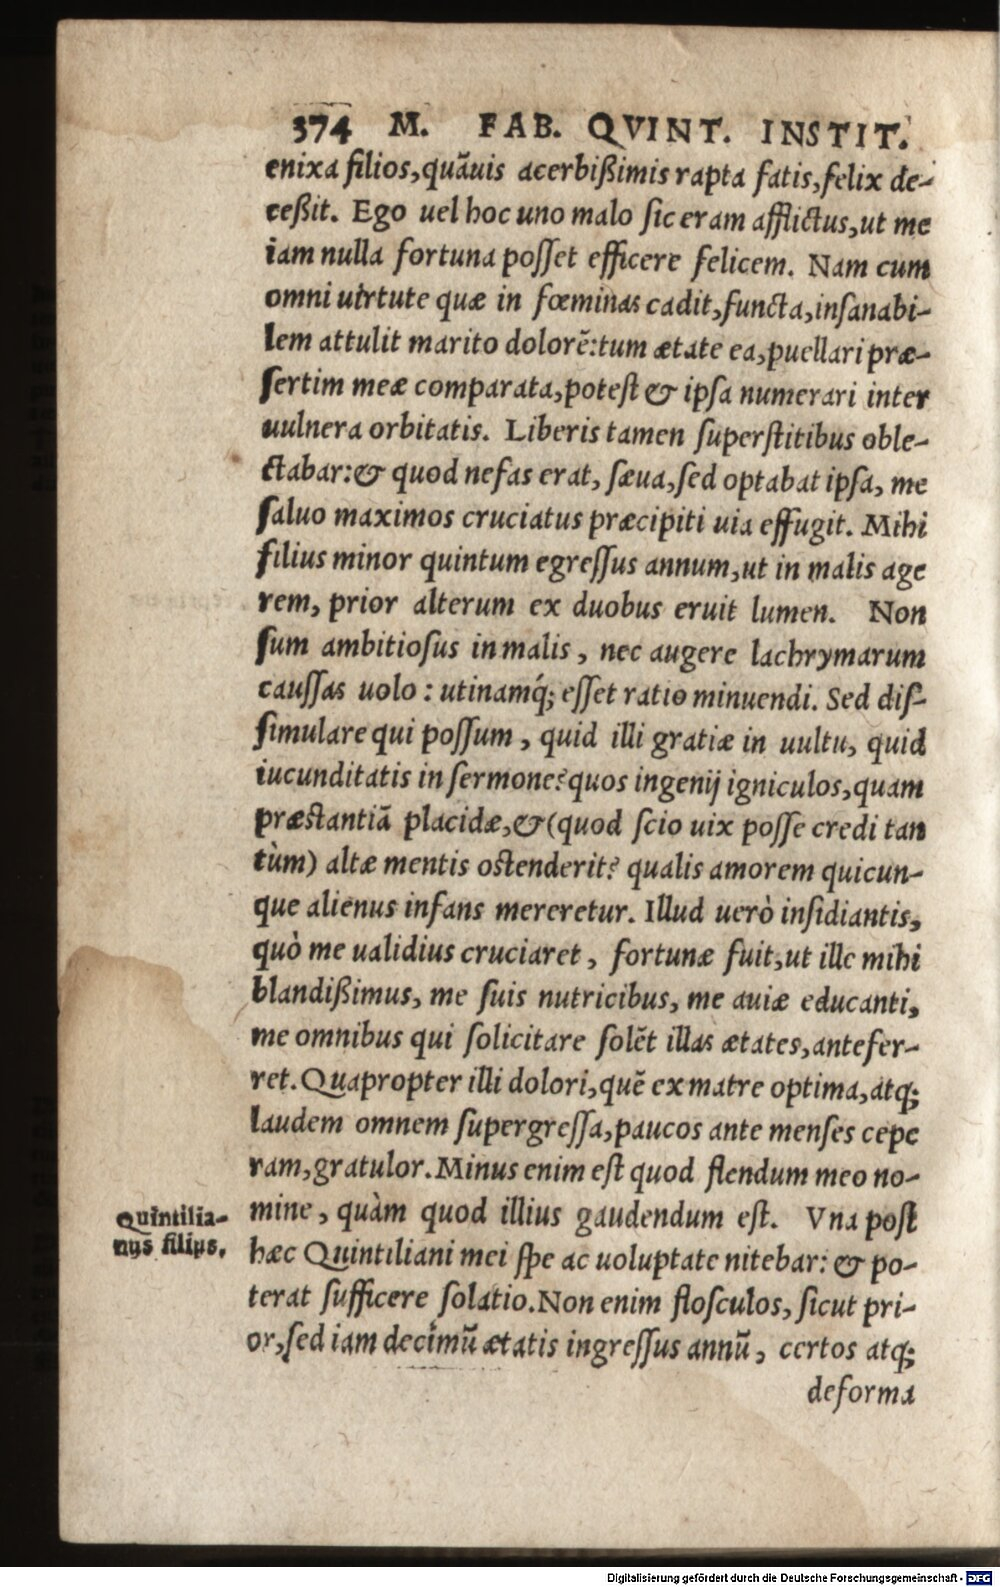 374 M. FAB. QVINT. INSTIT.
enixa filios, quãuis acerbißimis rapta fatis, felix de-
ceßit. Ego uel hoc uno malo ſic eram afflictus, ut me
iam nulla fortuna poſſet efficere felicem. Nam cum
omni uirtute quæ in fœminas cadit, functa, inſanabi-
lem attulit marito dolorẽ: tum ætate ea, puellari præ-
ſertim meæ comparata, poteſt & ipſa numerari inter
uulnera orbitatis. Liberis tamen ſuperſtitibus oble-
ctabar: & quod nefas erat, ſæua, ſed optabat ipſa, me
ſaluo maximos cruciatus præcipiti uia effugit. Mihi
filius minor quintum egreſſus annum, ut in malis age
rem, prior alterum ex duobus eruit lumen. Non
ſum ambitioſus in malis, nec augere lachrymarum
cauſſas uolo: utinamq́; eſſet ratio minuendi. Sed diſ-
ſimulare qui poſſum, quid illi gratiæ in uultu, quid
iucunditatis in ſermone? quos ingenij igniculos, quam
præſtantiã placidæ, & (quod ſcio uix poſſe credi tan
tùm) altæ mentis oſtenderit? qualis amorem quicun-
que alienus infans mereretur. Illud uerò inſidiantis,
quò me ualidius cruciaret, fortunæ fuit, ut ille mihi
blandißimus, me ſuis nutricibus, me auiæ educanti,
me omnibus qui ſolicitare ſolẽt illas ætates, antefer-
ret. Quapropter illi dolori, quẽ ex matre optima, atq;
laudem omnem ſupergreſſa, paucos ante menſes cepe
ram, gratulor. Minus enim eſt quod flendum meo no-
mine, quàm quod illius gaudendum eſt. Vna poſt
hæc Quintiliani mei ſpe ac uoluptate nitebar: & po-
terat ſufficere ſolatio. Non enim floſculos, ſicut pri-
or, ſed iam decimũ ætatis ingreſſus annũ, certos atq;
deforma
Quintilia-
nus filius.
Digitalisierung gefördert durch die Deutsche Forschungsgemeinschaft - DFG